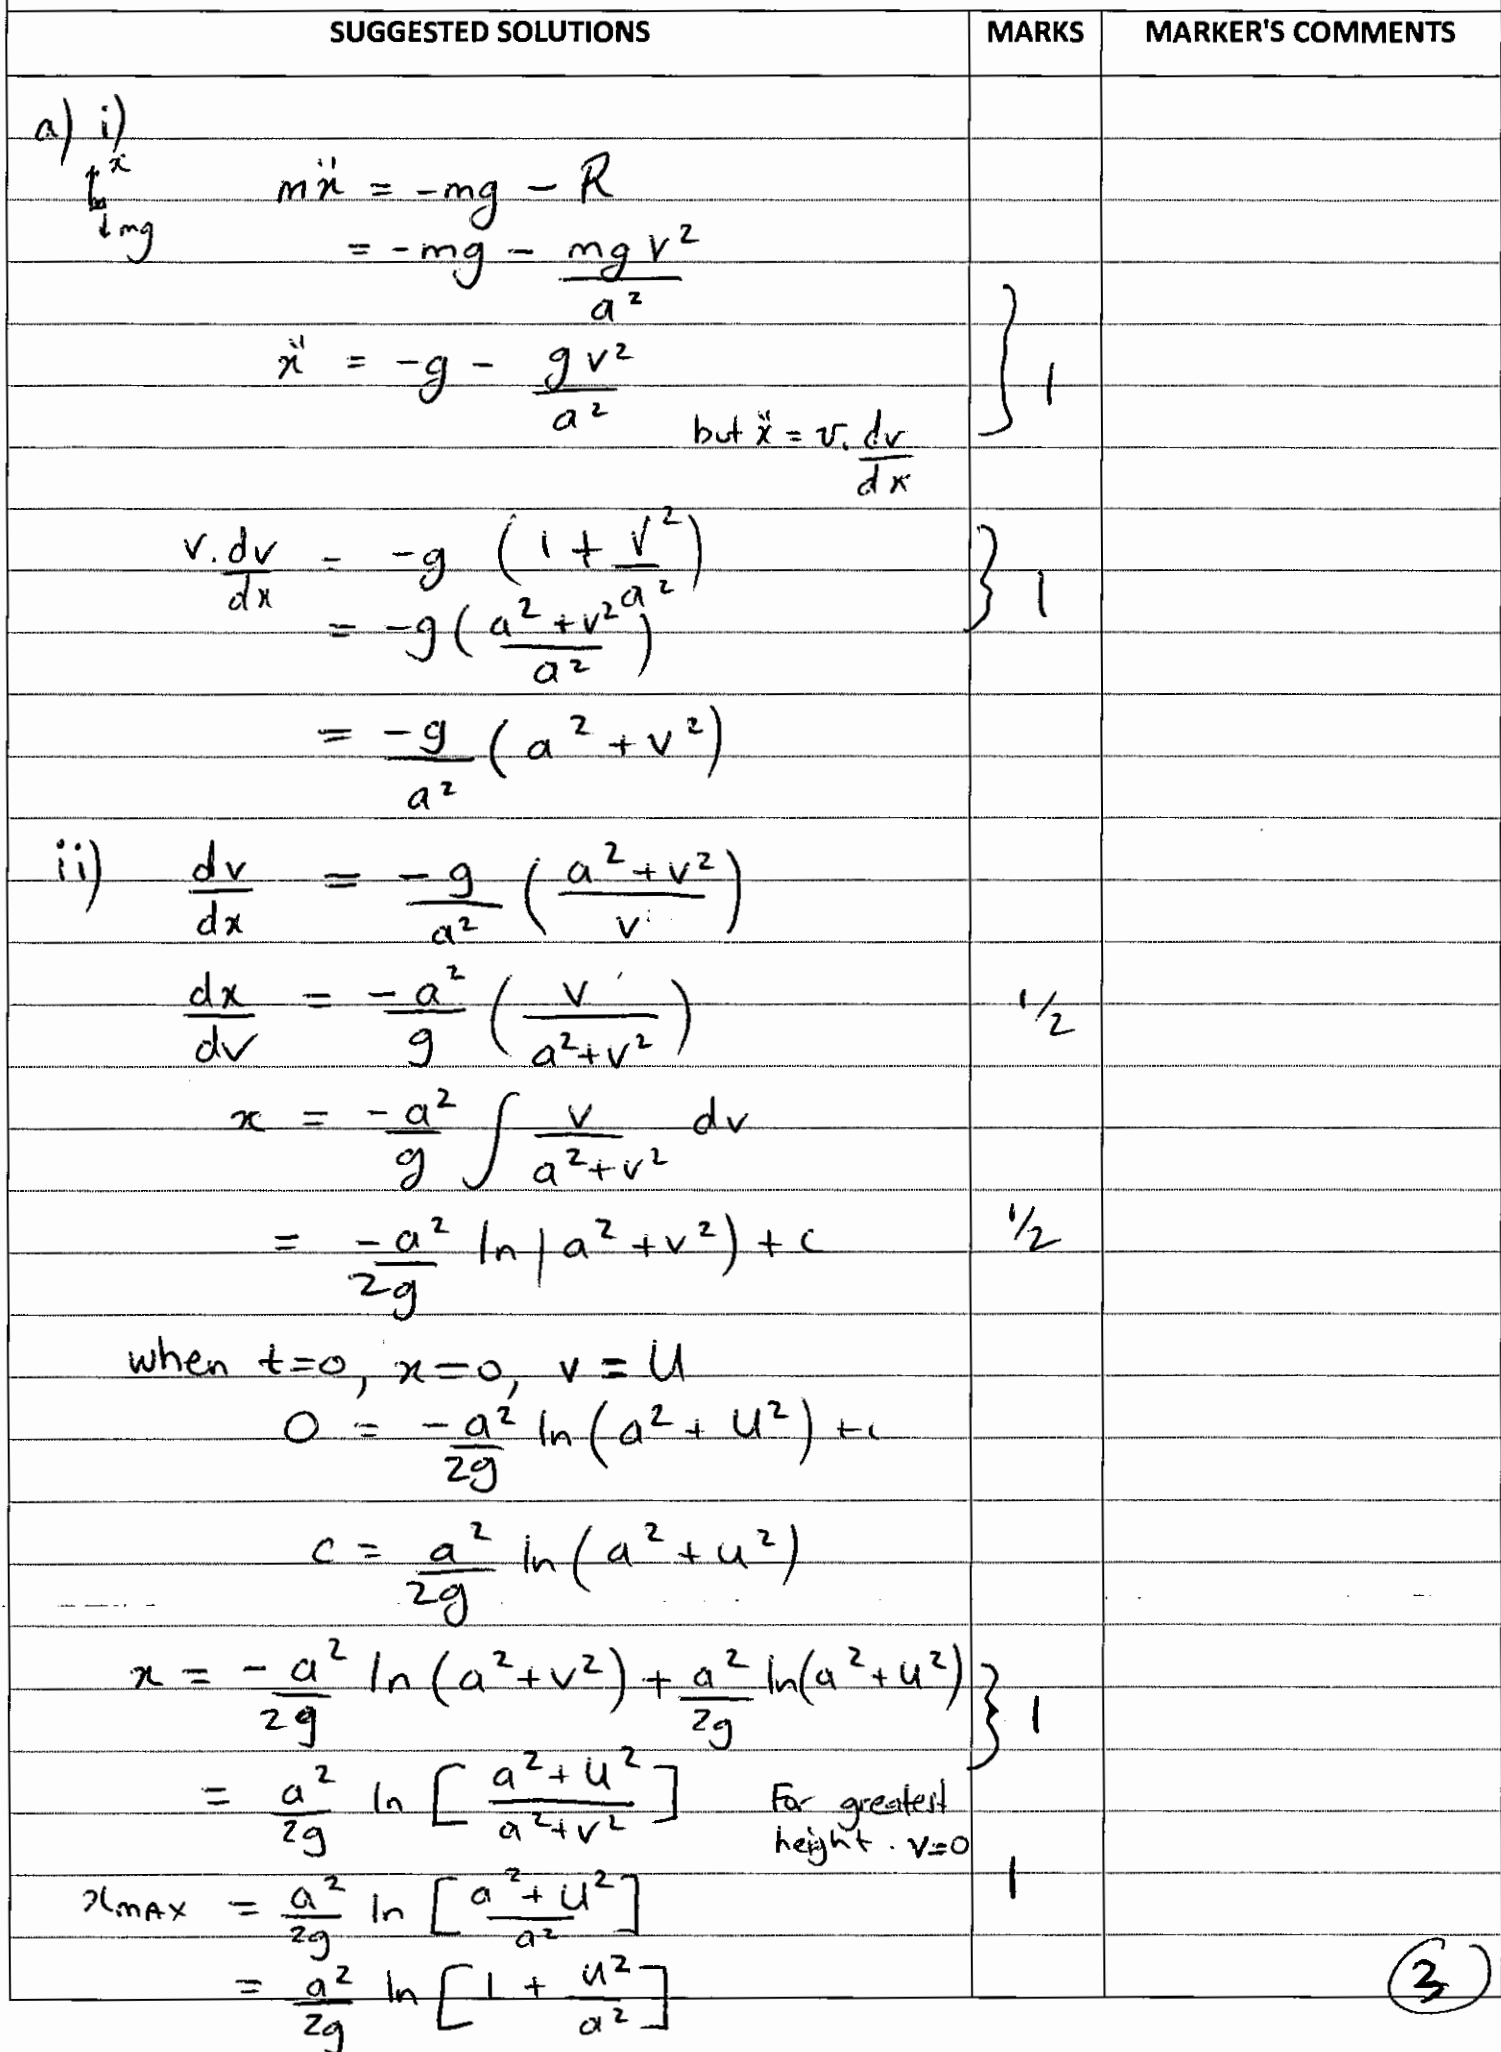 SUGGESTED SOLUTIONS MARKS MARKER'S COMMENTS
a) i)
ẍ
mg
mẍ = -mg - R
= -mg - mgv²/a²
ẍ = -g - gv²/a²
1
but ẍ = v. dv/dx
v. dv/dx = -g (1 + v²/a²)
1
= -g ((a² + v²)/a²)
= -g/a² (a² + v²)
ii) dv/dx = -g/a² ((a² + v²)/v)
dx/dv = -a²/g (v/(a² + v²)) 1/2
x = -a²/g ∫ v/(a² + v²) dv
= -a²/2g ln|a² + v²) + c 1/2
when t=0, x=0, v = U
0 = -a²/2g ln(a² + U²) + c
c = a²/2g ln(a² + u²)
x = -a²/2g ln(a² + v²) + a²/2g ln(a² + u²)
1
= a²/2g ln[(a² + U²)/(a² + v²)] For greatest
height. v=0
1
xMAX = a²/2g ln[(a² + U²)/a²]
= a²/2g ln[1 + u²/a²]
3